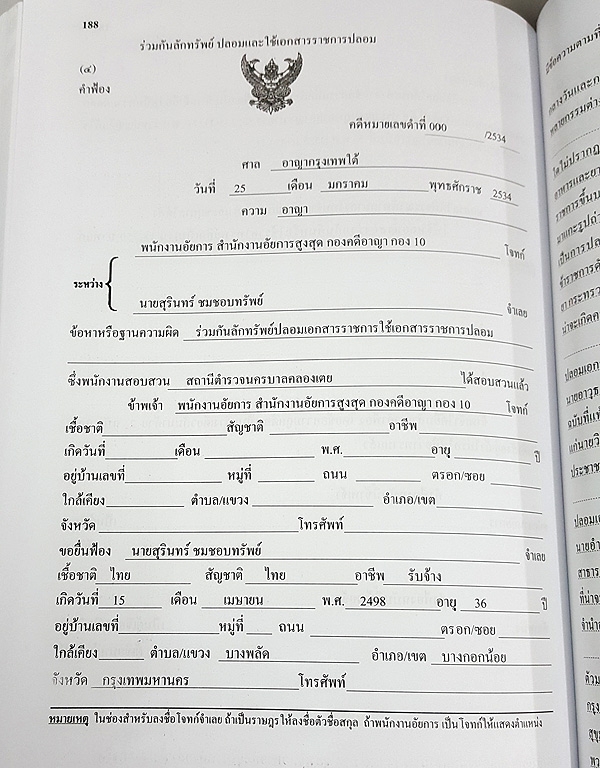 188
ร่วมกันลักทรัพย์ ปลอมและใช้เอกสารราชการปลอม
(๔)
คำฟ้อง
คดีหมายเลขดำที่ 000 /2534
ศาล อาญากรุงเทพใต้
วันที่ 25 เดือน มกราคม พุทธศักราช 2534
ความ อาญา
พนักงานอัยการ สำนักงานอัยการสูงสุด กองคดีอาญา กอง 10 โจทก์
ระหว่าง
นายสุรินทร์ ชมชอบทรัพย์ จำเลย
ข้อหาหรือฐานความผิด ร่วมกันลักทรัพย์ปลอมเอกสารราชการใช้เอกสารราชการปลอม
ซึ่งพนักงานสอบสวน สถานีตำรวจนครบาลคลองเตย ได้สอบสวนแล้ว
ข้าพเจ้า พนักงานอัยการ สำนักงานอัยการสูงสุด กองคดีอาญา กอง 10 โจทก์
เชื้อชาติ สัญชาติ อาชีพ
เกิดวันที่ เดือน พ.ศ. อายุ ปี
อยู่บ้านเลขที่ หมู่ที่ ถนน ตรอก/ซอย
ใกล้เคียง ตำบล/แขวง อำเภอ/เขต
จังหวัด โทรศัพท์
ขอยื่นฟ้อง นายสุรินทร์ ชมชอบทรัพย์ จำเลย
เชื้อชาติ ไทย สัญชาติ ไทย อาชีพ รับจ้าง
เกิดวันที่ 15 เดือน เมษายน พ.ศ. 2498 อายุ 36 ปี
อยู่บ้านเลขที่ หมู่ที่ ถนน ตรอก/ซอย
ใกล้เคียง ตำบล/แขวง บางพลัด อำเภอ/เขต บางกอกน้อย
จังหวัด กรุงเทพมหานคร โทรศัพท์
หมายเหตุ ในช่องสำหรับลงชื่อโจทก์จำเลย ถ้าเป็นราษฎรให้ลงชื่อตัวชื่อสกุล ถ้าพนักงานอัยการ เป็นโจทก์ให้แสดงตำแหน่ง